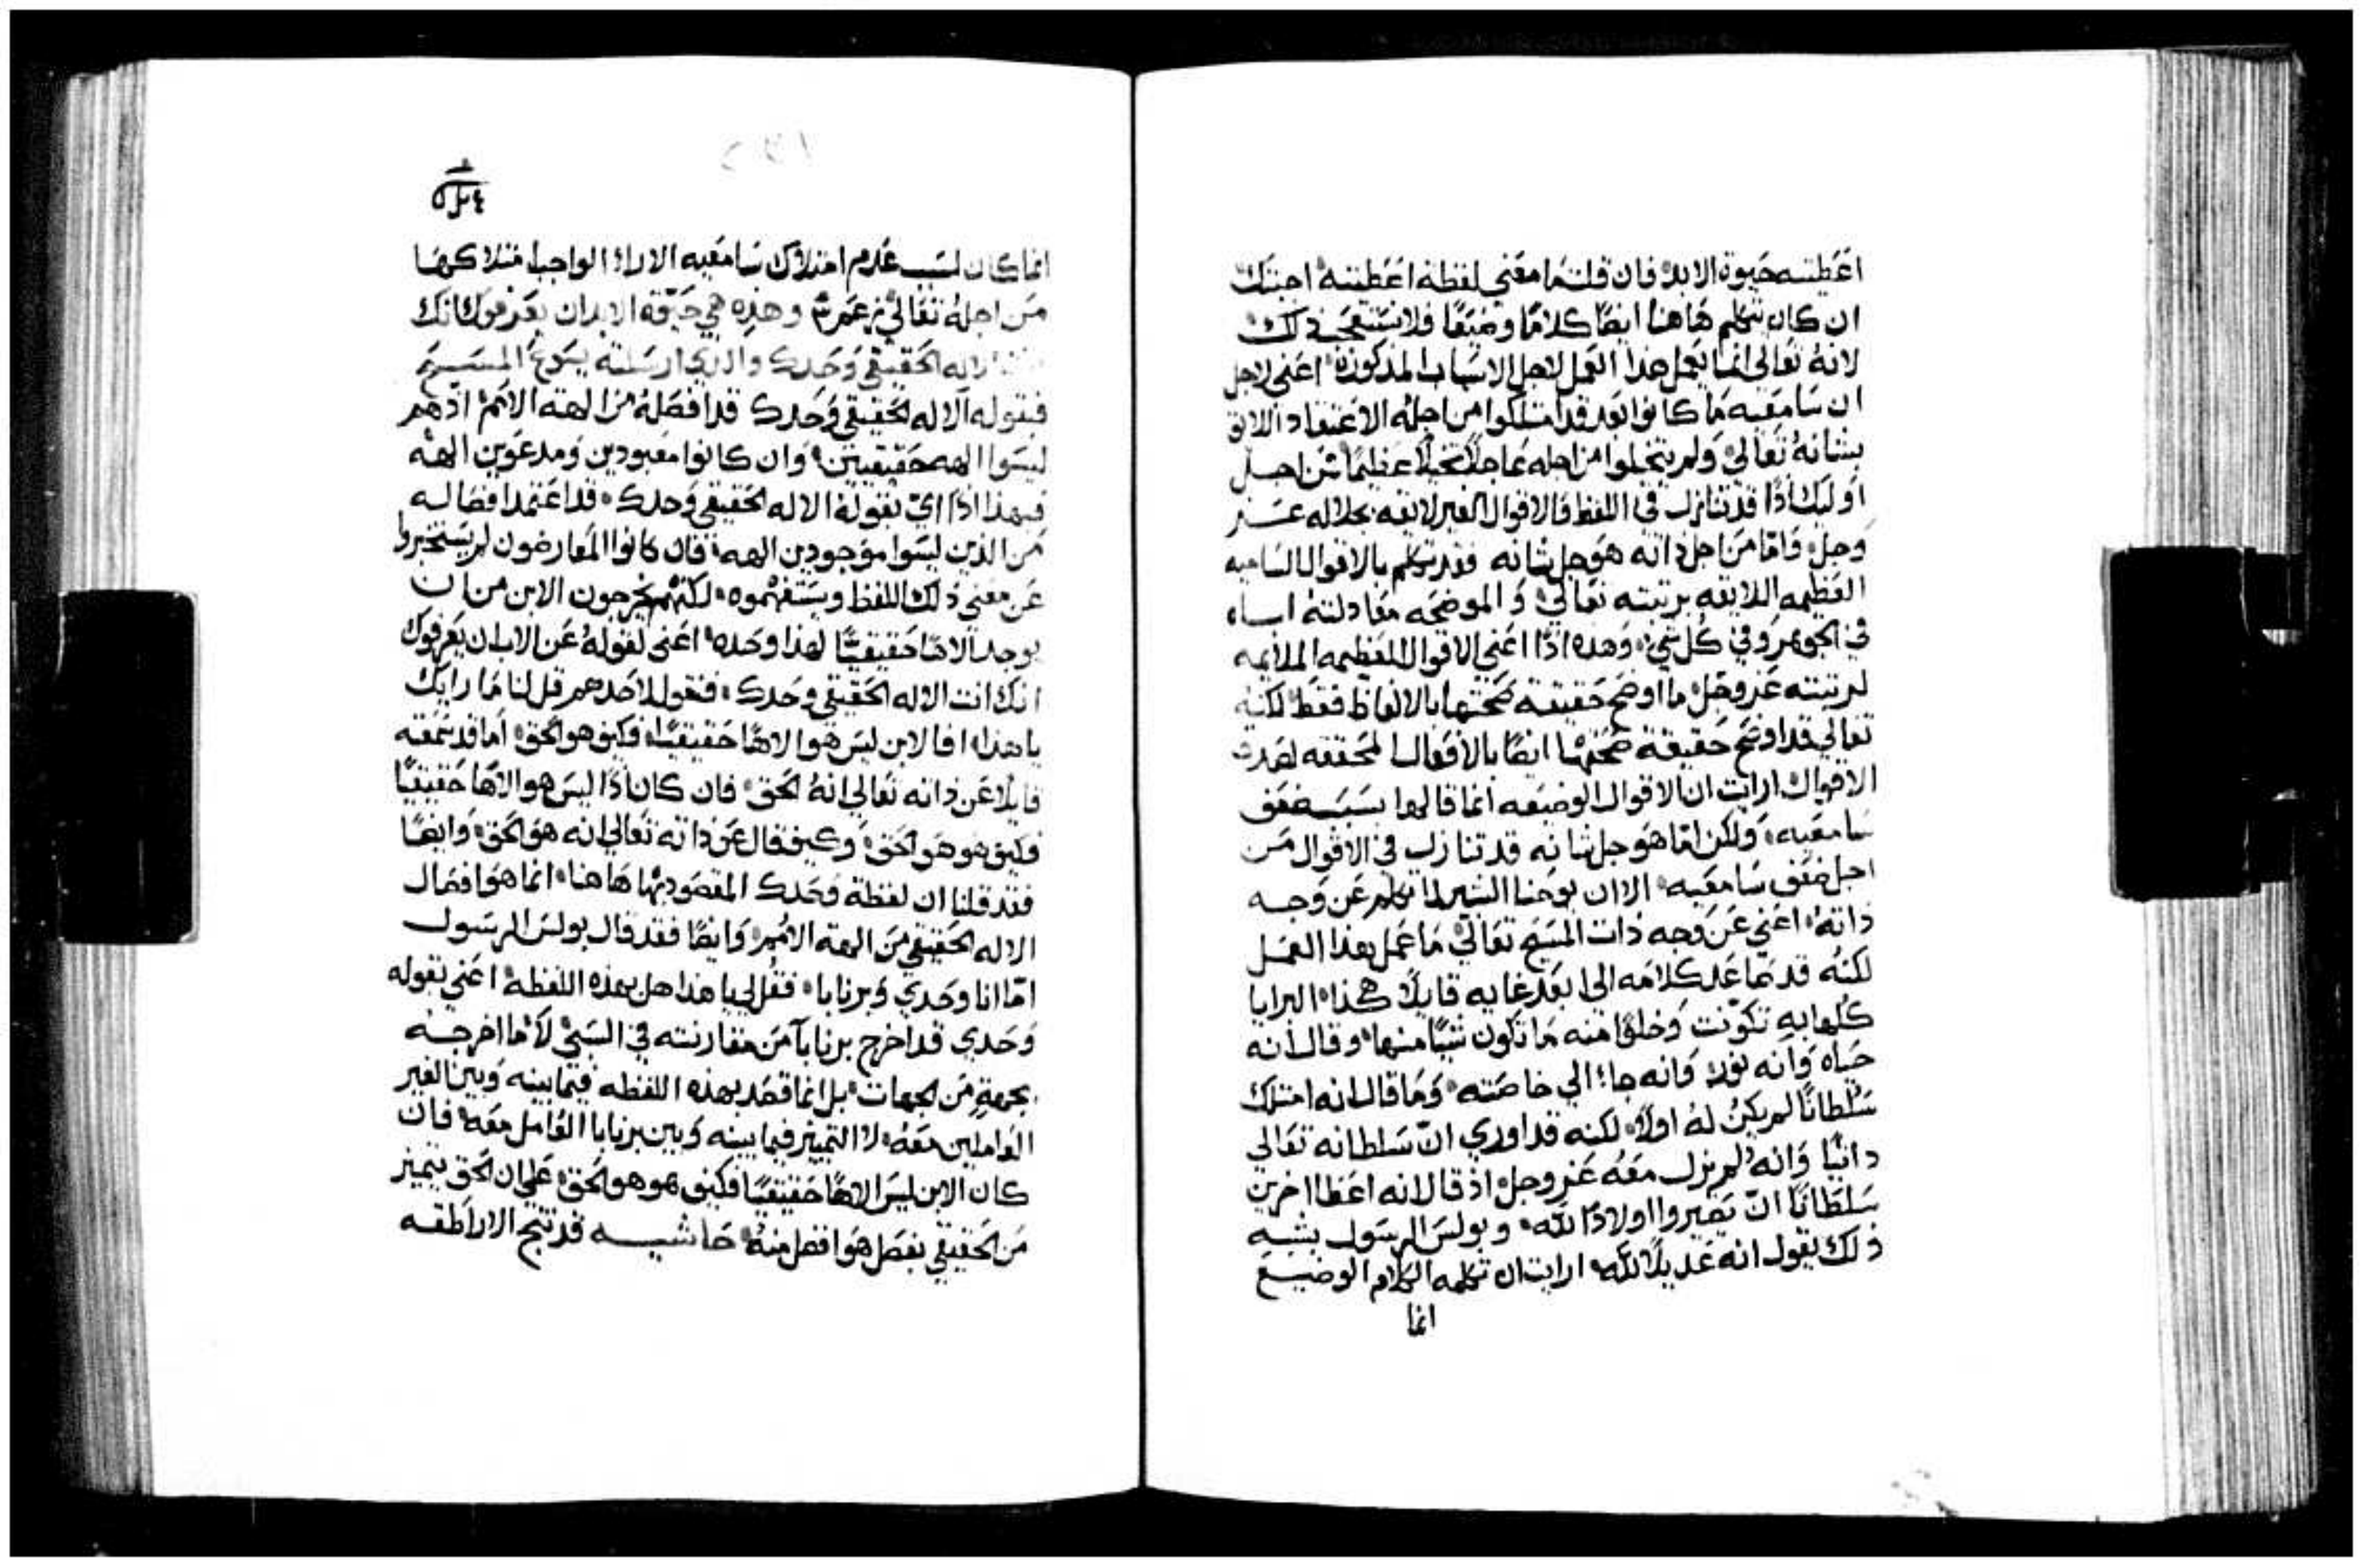 اعَطيته حَيوة الابد فان قلت مَا معَني لفظة اعَطيته اجبتك
ان كان تتكلم هَاهنا ايضًا كلامًا وضيعًا فلا تستعجَب ذلك
لانهُ تعَالي انما يعَمل هذا العَمل لاجل الاسبَاب المذكورة اعَني لاجل
ان سَامعَيه مَا كانوا بعَد قد امتلكوا من اجلهُ الاعَتقاد اللايق
بشانهُ تعَالي ولم يتخيلوا من اجله عَاجلاً تخيلاً عَظيمًا من اجل
اوليك اذًا قد تنازل في اللفظ فالاقوال الغير لايقه بجلاله عَز
وَجل وَامّا مَن اجل ذاته هوَ جل شانه فقد تكلم بالاقوال الساميه
العَظيمه اللايقه برتبته تعَالي وَالموضحَه معَادلتهُ اباه
في الجوهر وفي كُل شي وَهذه اذًا اعَني الاقوال العَظيمه الملايمه
لرتبته عَز وجَل ما اوضح حَقيقة صحَتها بالالفاظ فقط لكنهُ
تعَالي قد اوضح حَقيقة صحَتها ايضًا بالافعَال المحَققه لهذه
الاقوال ارايت ان الاقوال الوضيعَه انما قالها بسَبَب ضعَف
سَامعَيه وَلكن امّا هوَ جل شانه قد تنازل في الاقوال مَن
اجل ضعَف سَامعَيه الا ان يوحَنا البشير لما تكلم عَن وَجه
ذاتهُ اعَني عَن وَجه ذات المسَيح تعَالي مَا عَمل هذا العَمل
لكنُه قد سَمَا عَلا كلامَه الي ابعَد غايه قايلاً هكذا البرايا
كُلها بِه تكوّنت وَخلوًا منه مَا تكون شيًا منها وقال انه
حَياه وَانه نور وَانه جاء الي خاصَته وَمَا قال انه امتلك
سُلطانًا لم يكنْ لهُ اولاً لكنه قد اوري انّ سَلطانه تعَالي
دايمًا وَانهُ لم يزل معَهُ عَز وجل اذ قال انه اعَطا اخرين
سَلطَانًا انّ يَصيروا اولادًا لله وبولسَ الرسَول بشبه
ذلك يقول انه عَديلاً لله ارايت ان تكلمه الكلام الوضيعَ
انما
انما كان لسَبب عَدم امتلاك سَامعَيه الاراء الواجب امتلاكها
مَن اجلهُ تعَالي وهذِه هي حَيوة الابد ان يعَرفوك انك
الاله الحَقيقي وَحَدك والذي ارسَلته يسَوع المسَيح
فبقوله الاله الحَقيقي وَحَدك قد افصَلهُ مَن الهة الامم اذ هم
ليسَوا الهه حَقيقيين وَان كانوا معَبودين وَمدعَوين الهه
فبهذا اذًا اي بقولهُ الاله الحَقيقي وَحَدك قد اعَتمد افصَاله
مَن الذين ليسَوا موَجودين الهه فان كانوا المعَارضون لم يستَخبروا
عَن معَني ذلك اللفظ ويسَتفهموه لكنّهم يخرجون الابن من ان
يوجد الاهًا حَقيقيًا لهذا وحَده اعَني لقولهُ عَن الاب ان يعَرفوك
انك انت الاله الحَقيقي وحَدك فنقول لاحَدهم قل لنا مَا رايك
يا هذا افالابن ليسَ هو الاهًا حَقيقيًا فكيف هو الحَق امَا قد سَمَعَته
قايلاً عَن ذاته تعَالي انهُ الحَق فان كان اذًا ليسَ هو الاهًا حَقيقيًا
فكيف هو هوَ الحَق وَكيف قال عَن ذاته تعَالي انه هوَ الحَق وَايضًا
فقد قلنا ان لفظة وَحَدك المقصَود بها هَاهنا انما هوَ افصَال
الاله الحَقيقي مَن الهة الامم وَايضًا فقد قال بولسَ الرسَول
امّا انا وحَدي وَبرنابا فقُل لي يا هذا هل بهذه اللفظه اعَني بقوله
وَحَدي قد اخرج برنابا مَن مقارنته في السَبي لا مَا اخرجه
بجهةٍ مَن الجهات بل انما قصَد بهذه اللفظه فيمَا بينه وَبين الغير
العَاملين معَهُ لا التمييز فيما بينه وَبين برنابا العَامل معَه فان
كان الابن ليسَ الاهًا حَقيقيًا فكيف هو هو الحَق عَلي ان الحَق يتميز
مَن الحَقيقي بفصَل هوَ افضل منهُ حَاشيه قد تنتج الاراطقه